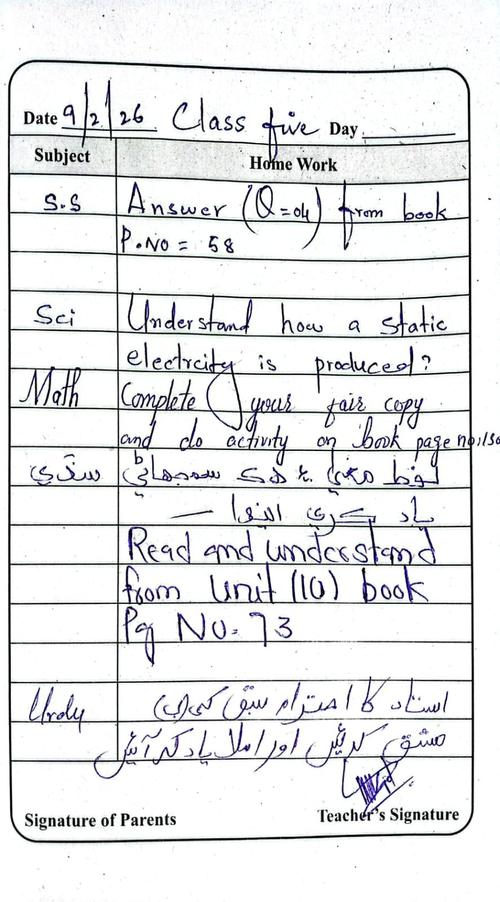 Date 9/2/26 Class five Day
Subject Home Work
S.S Answer (Q=04) from book
P.NO = 58
Sci Understand how a static
electrcity is produced?
Math Complete your fair copy
and do activity on book page no:
سنڌي لفظ معنيٰ ۽ هڪ سمجهاڻي
ياد ڪري اچو —
Read and understand
from Unit (10) book
Pg No. 73
Urdu استاد کا احترام سبق کی
مشق کریں اور املا یاد کر آئیں
Signature of Parents Teacher's Signature